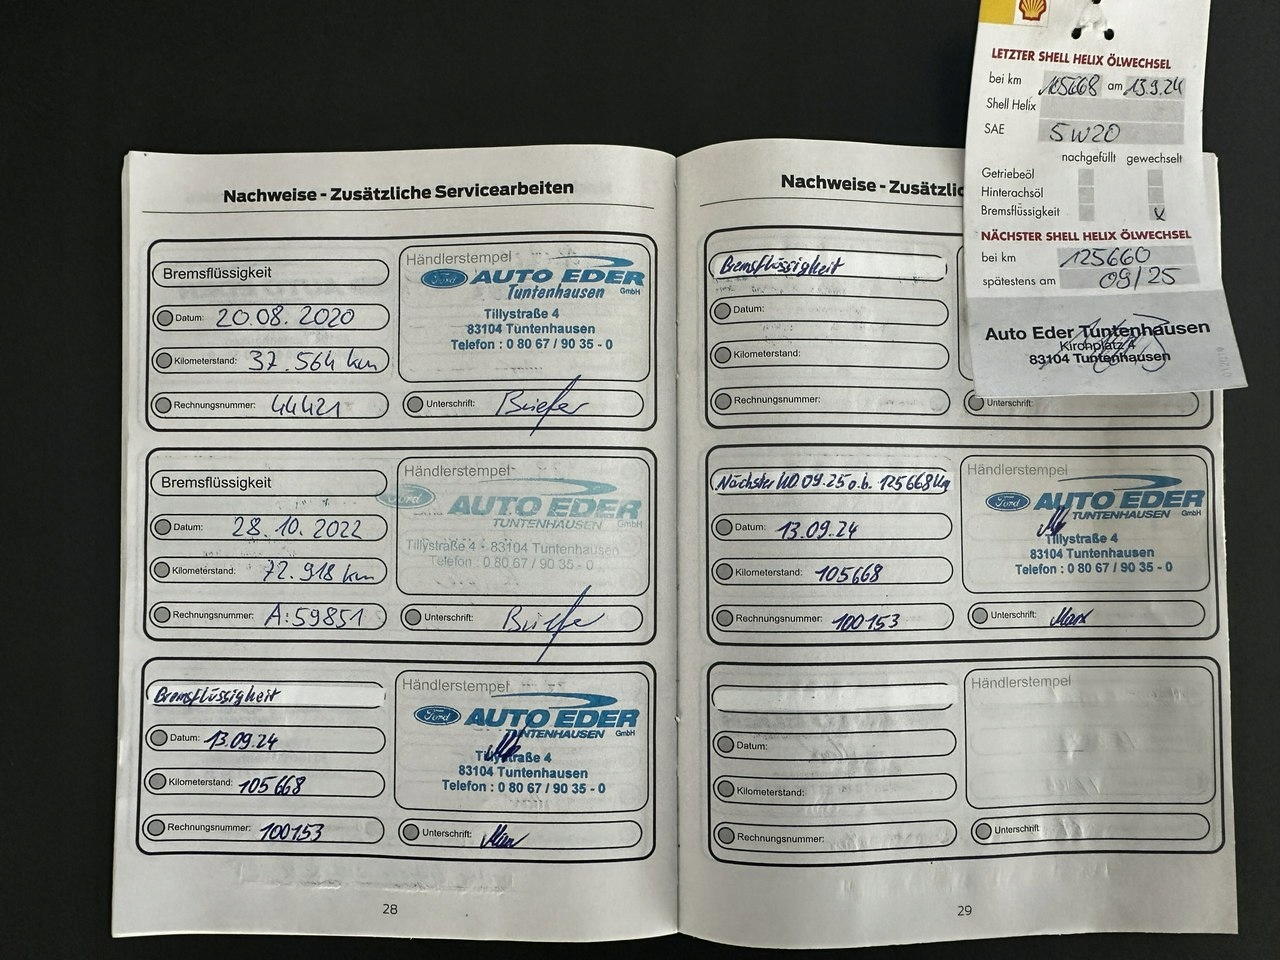 Nachweise - Zusätzliche Servicearbeiten
Bremsflüssigkeit
Datum: 20.08.2020
Kilometerstand: 37.564 km
Rechnungsnummer: 44421
Händlerstempel
Ford AUTO EDER
Tuntenhausen GmbH
Tillystraße 4
83104 Tuntenhausen
Telefon : 0 80 67 / 90 35 - 0
Unterschrift: Briefer
Bremsflüssigkeit
Datum: 28.10.2022
Kilometerstand: 72.918 km
Rechnungsnummer: A:59851
Händlerstempel
Ford AUTO EDER
TUNTENHAUSEN GmbH
Tillystraße 4 - 83104 Tuntenhausen
Telefon : 0 80 67 / 90 35 - 0
Unterschrift: Briefer
Bremsflüssigkeit
Datum: 13.09.24
Kilometerstand: 105668
Rechnungsnummer: 100153
Händlerstempel
Ford AUTO EDER
TUNTENHAUSEN GmbH
Tillystraße 4
83104 Tuntenhausen
Telefon : 0 80 67 / 90 35 - 0
Unterschrift:
28
Nachweise - Zusätzlic
Bremsflüssigkeit
Datum:
Kilometerstand:
Rechnungsnummer:
Unterschrift:
Nächster KD 09.25 o.b. 125668 Km
Datum: 13.09.24
Kilometerstand: 105668
Rechnungsnummer: 100153
Händlerstempel
Ford AUTO EDER
TUNTENHAUSEN GmbH
Tillystraße 4
83104 Tuntenhausen
Telefon : 0 80 67 / 90 35 - 0
Unterschrift:
Datum:
Kilometerstand:
Rechnungsnummer:
Händlerstempel
Unterschrift:
29
LETZTER SHELL HELIX ÖLWECHSEL
bei km 105668 am 13.9.24
Shell Helix
SAE 5W20
nachgefüllt gewechselt
Getriebeöl
Hinterachsöl
Bremsflüssigkeit x
NÄCHSTER SHELL HELIX ÖLWECHSEL
bei km 125660
spätestens am 09/25
Auto Eder Tuntenhausen
Kirchplatz 4
83104 Tuntenhausen